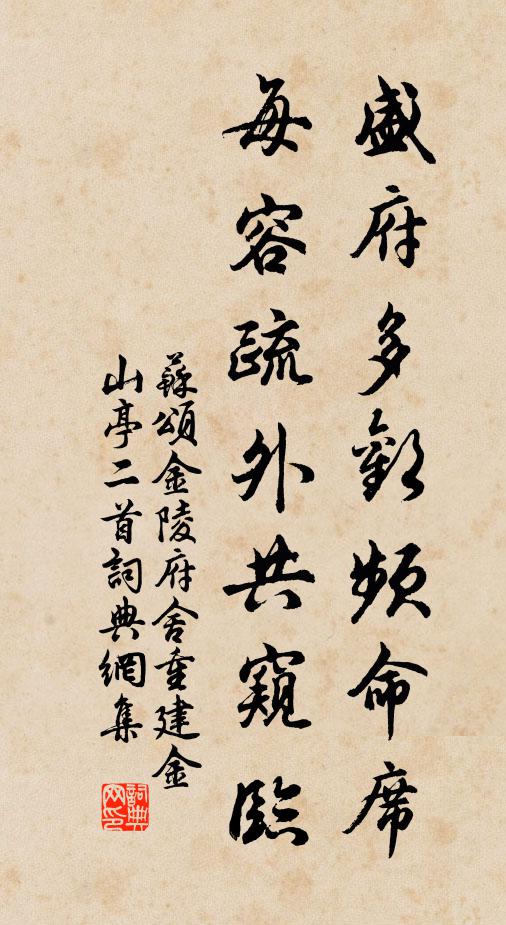 盛府多歡頻命席
每容疏外共窺臨
蘇頌金陵府舍重建金
山亭二首詞典網集
詞典網印